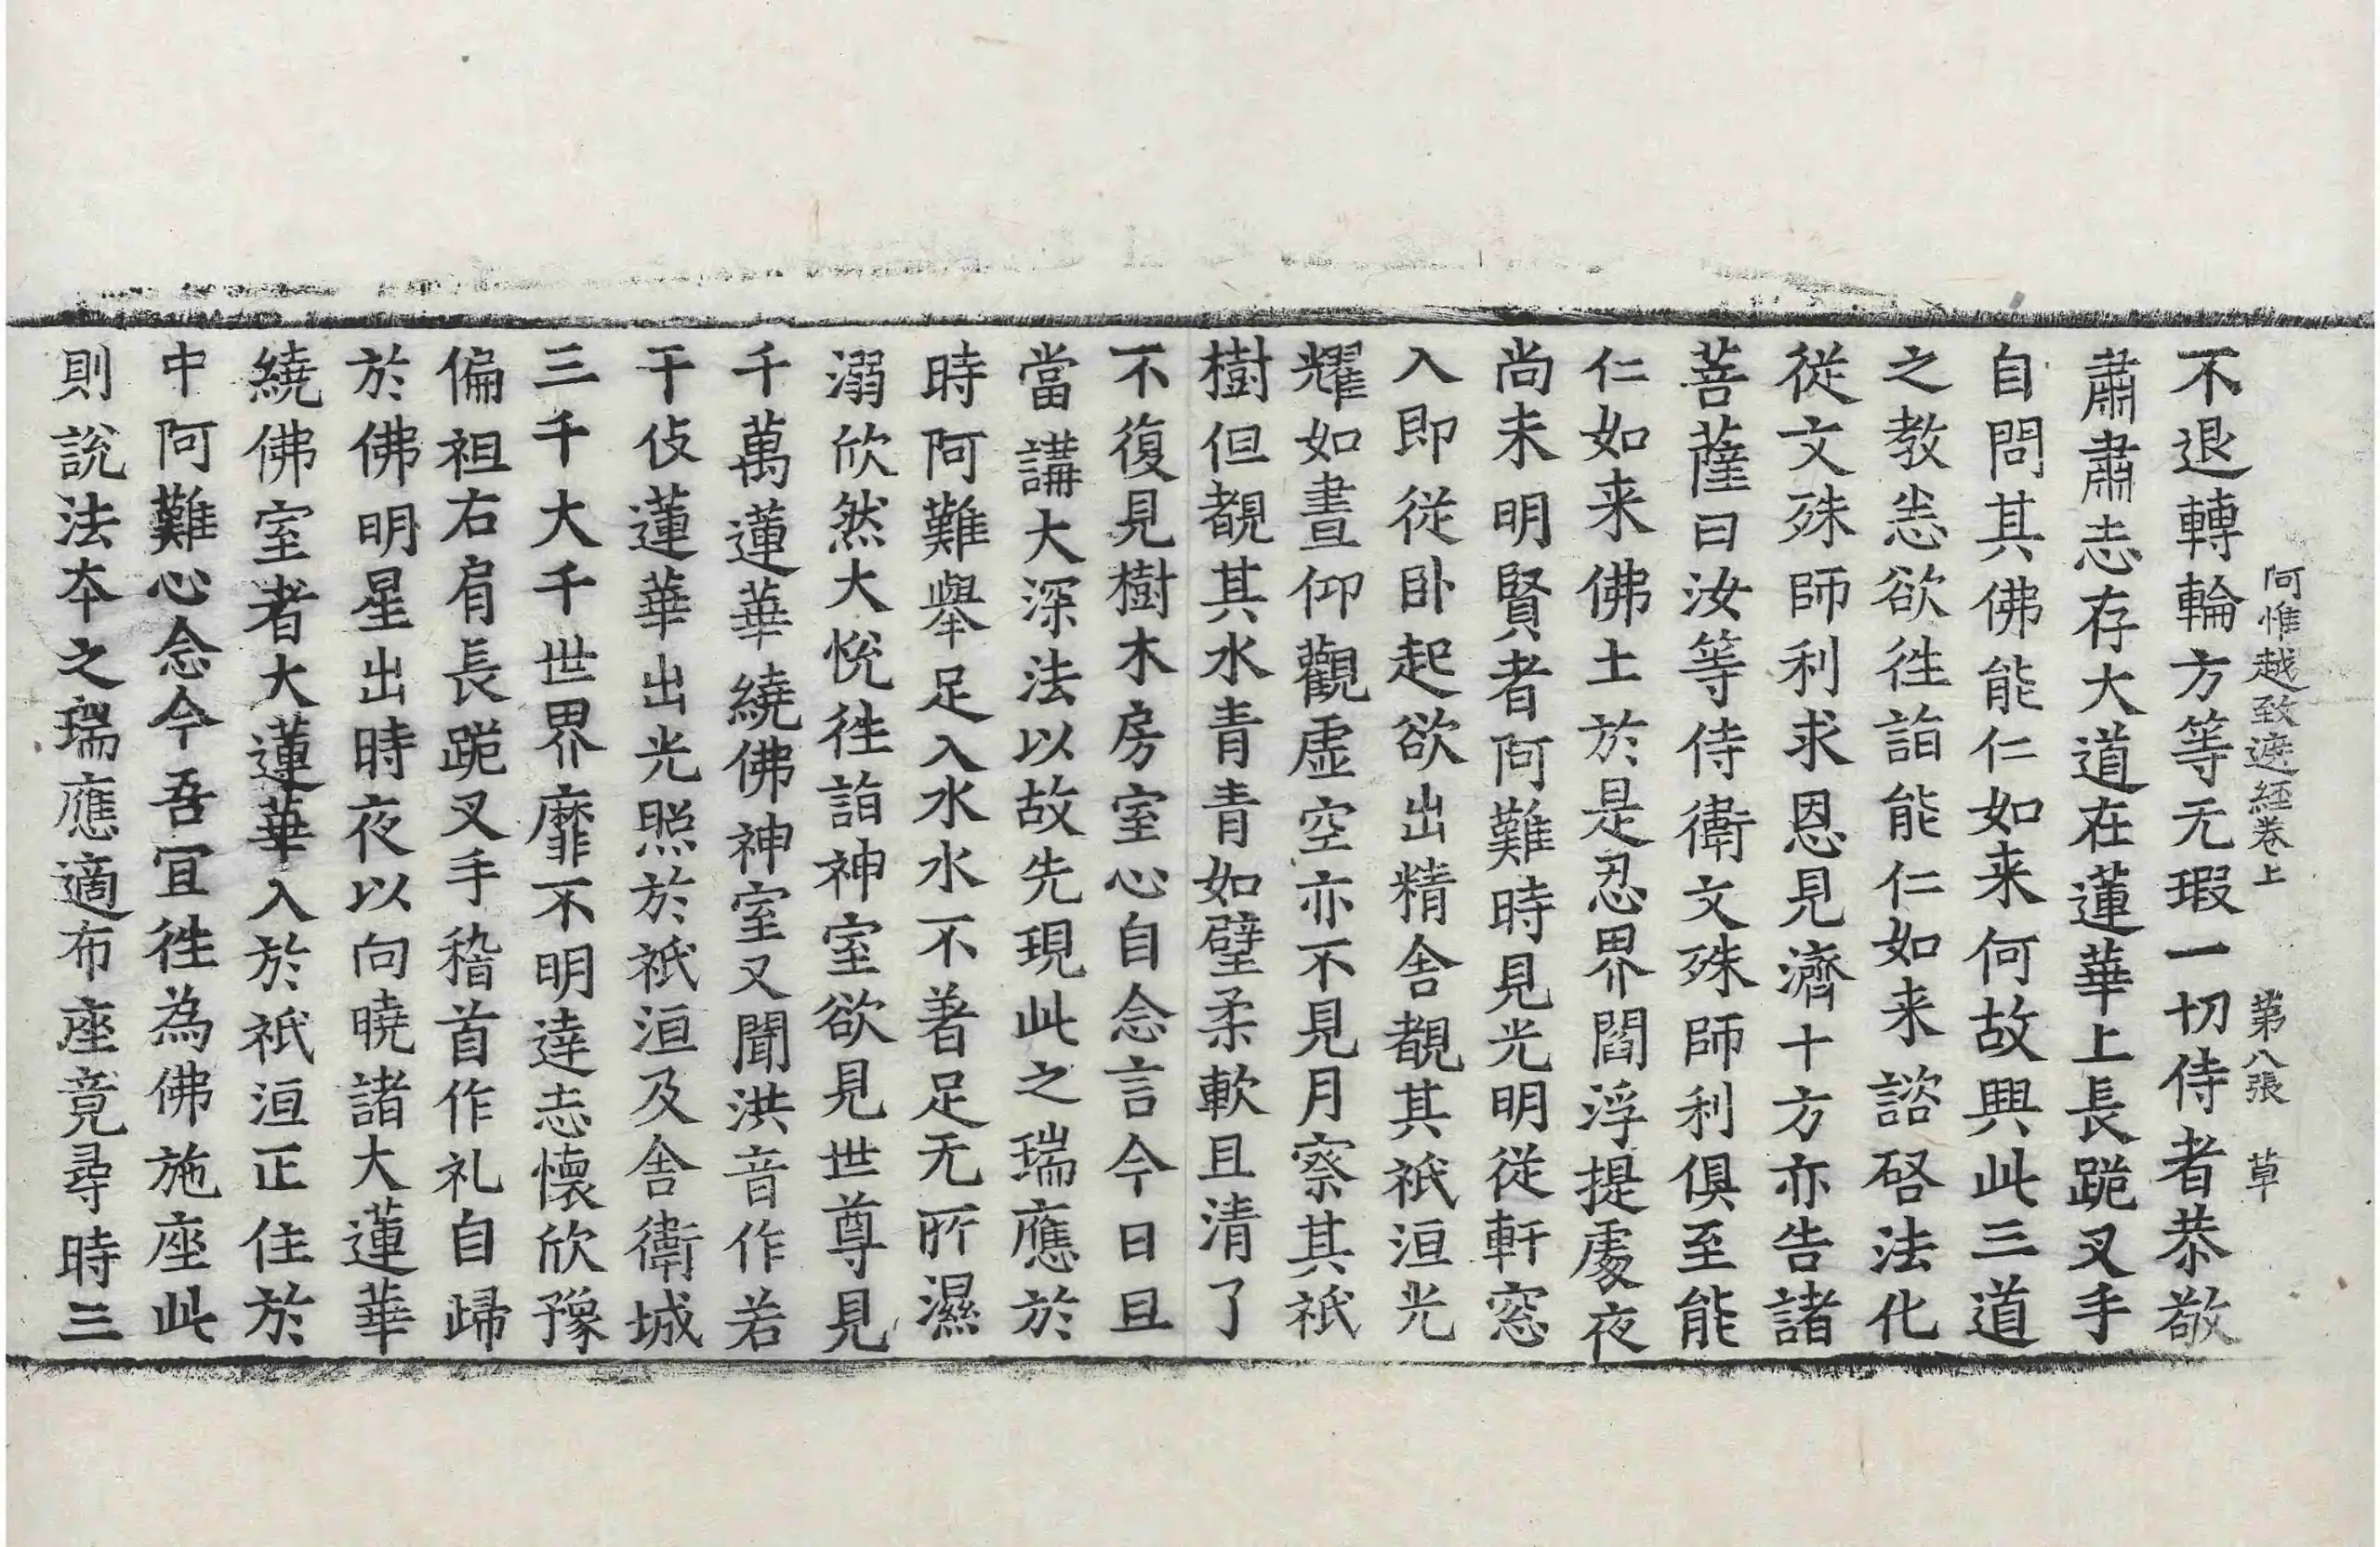 阿惟越致遮經卷上　第八張　草
不退轉輪方等无瑕一切侍者恭敬
肅肅志存大道在蓮華上長跪叉手
自問其佛能仁如来何故興此三道
之教恙欲徃詣能仁如来諮啓法化
從文殊師利求恩見濟十方亦告諸
菩薩曰汝等侍衛文殊師利俱至能
仁如来佛土於是忍界閻浮提處夜
尚未明賢者阿難時見光明從軒窓
入即從卧起欲出精舎覩其祇洹光
耀如晝仰觀虛空亦不見月察其祇
樹但覩其水青青如璧柔軟且清了
不復見樹木房室心自念言今日且
當講大深法以故先現此之瑞應於
時阿難舉足入水水不著足无所濕
溺欣然大悅徃詣神室欲見世尊見
千萬蓮華繞佛神室又聞洪音作若
干伎蓮華出光照於祇洹及舎衛城
三千大千世界靡不明達志懷欣豫
偏袒右肩長跪叉手稽首作礼自歸
於佛明星出時夜以向曉諸大蓮華
繞佛室者大蓮華入於祇洹正住於
中阿難心念今吾宜徃為佛施座此
則說法夲之瑞應適布座竟尋時三